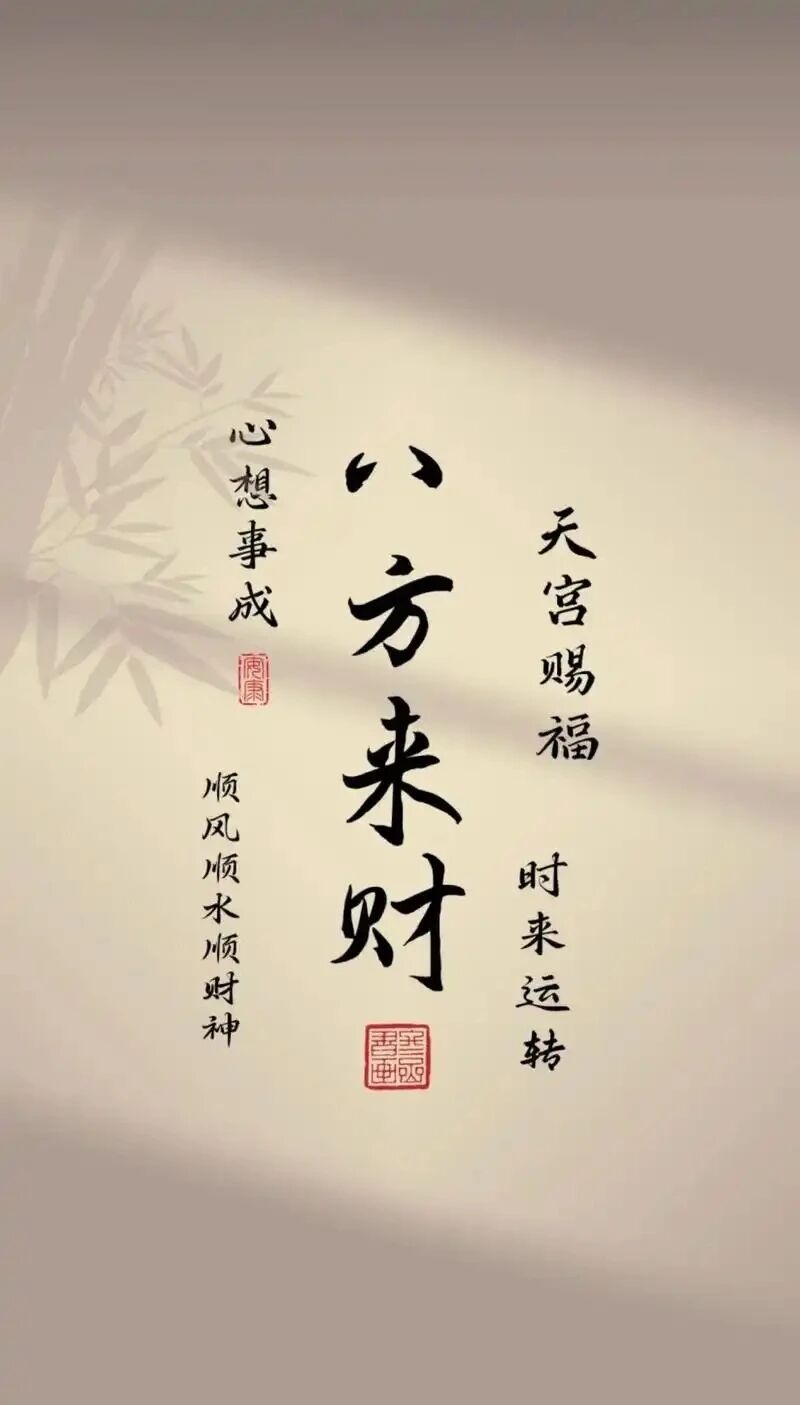 天宫赐福
时来运转
八方来财
心想事成
安康
顺风顺水顺财神